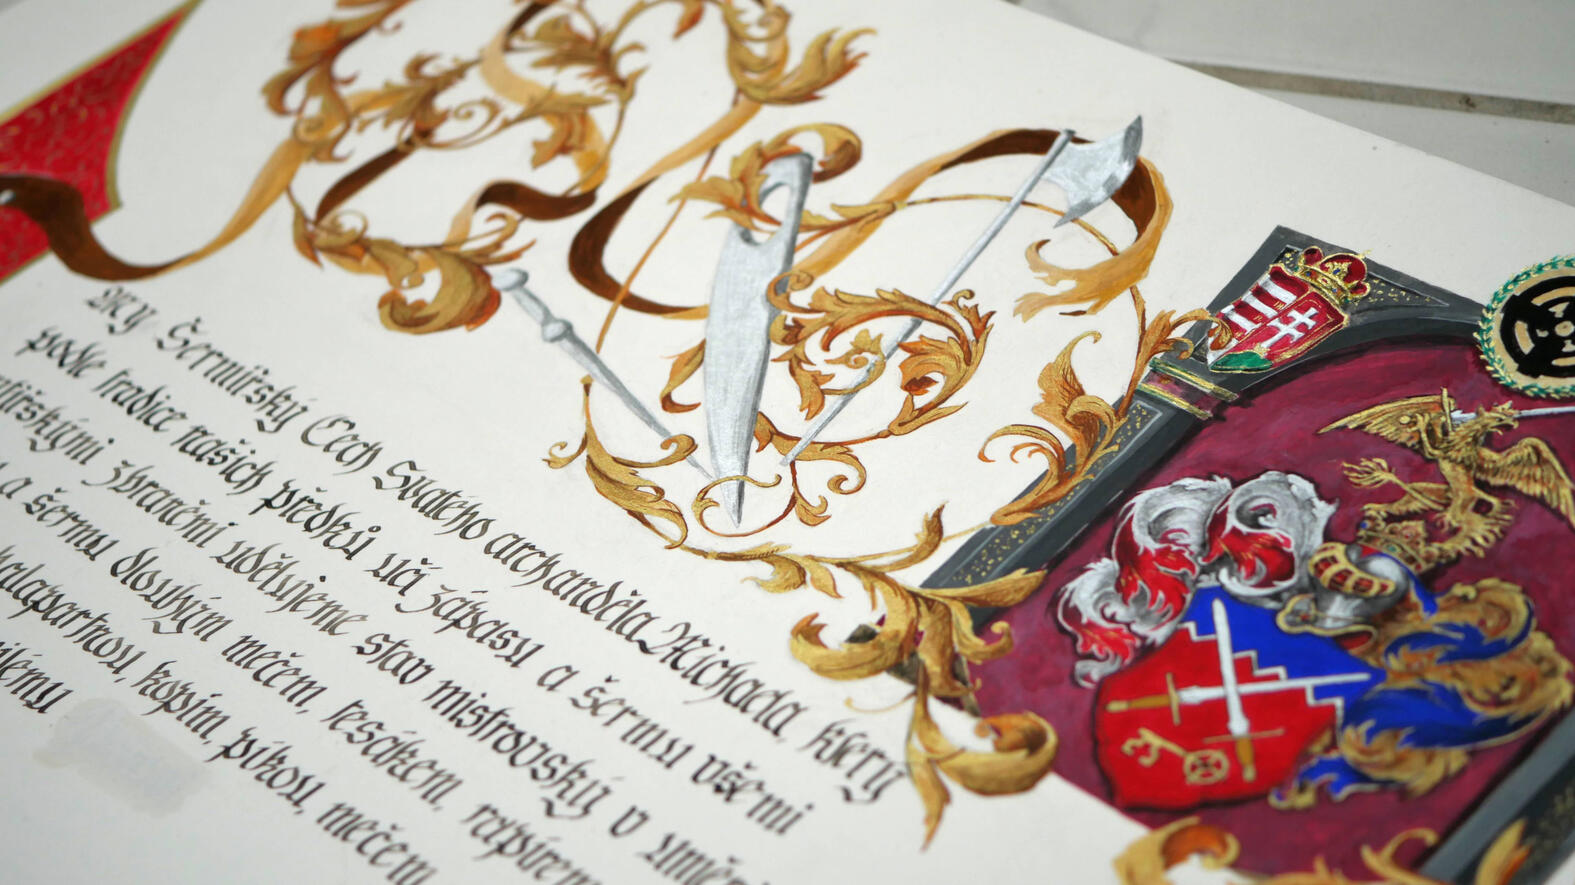 My Šermířský Cech Svatého archanděla Michaela, který
podle tradice našich předků učí zápasu a šermu všemi
zbraněmi udělujeme stav mistrovský v
a šermu dlouhým mečem, tesákem, rapírem
kopím, píkou, mečem